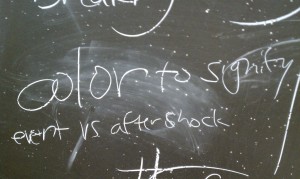 color to signify
event vs aftershock